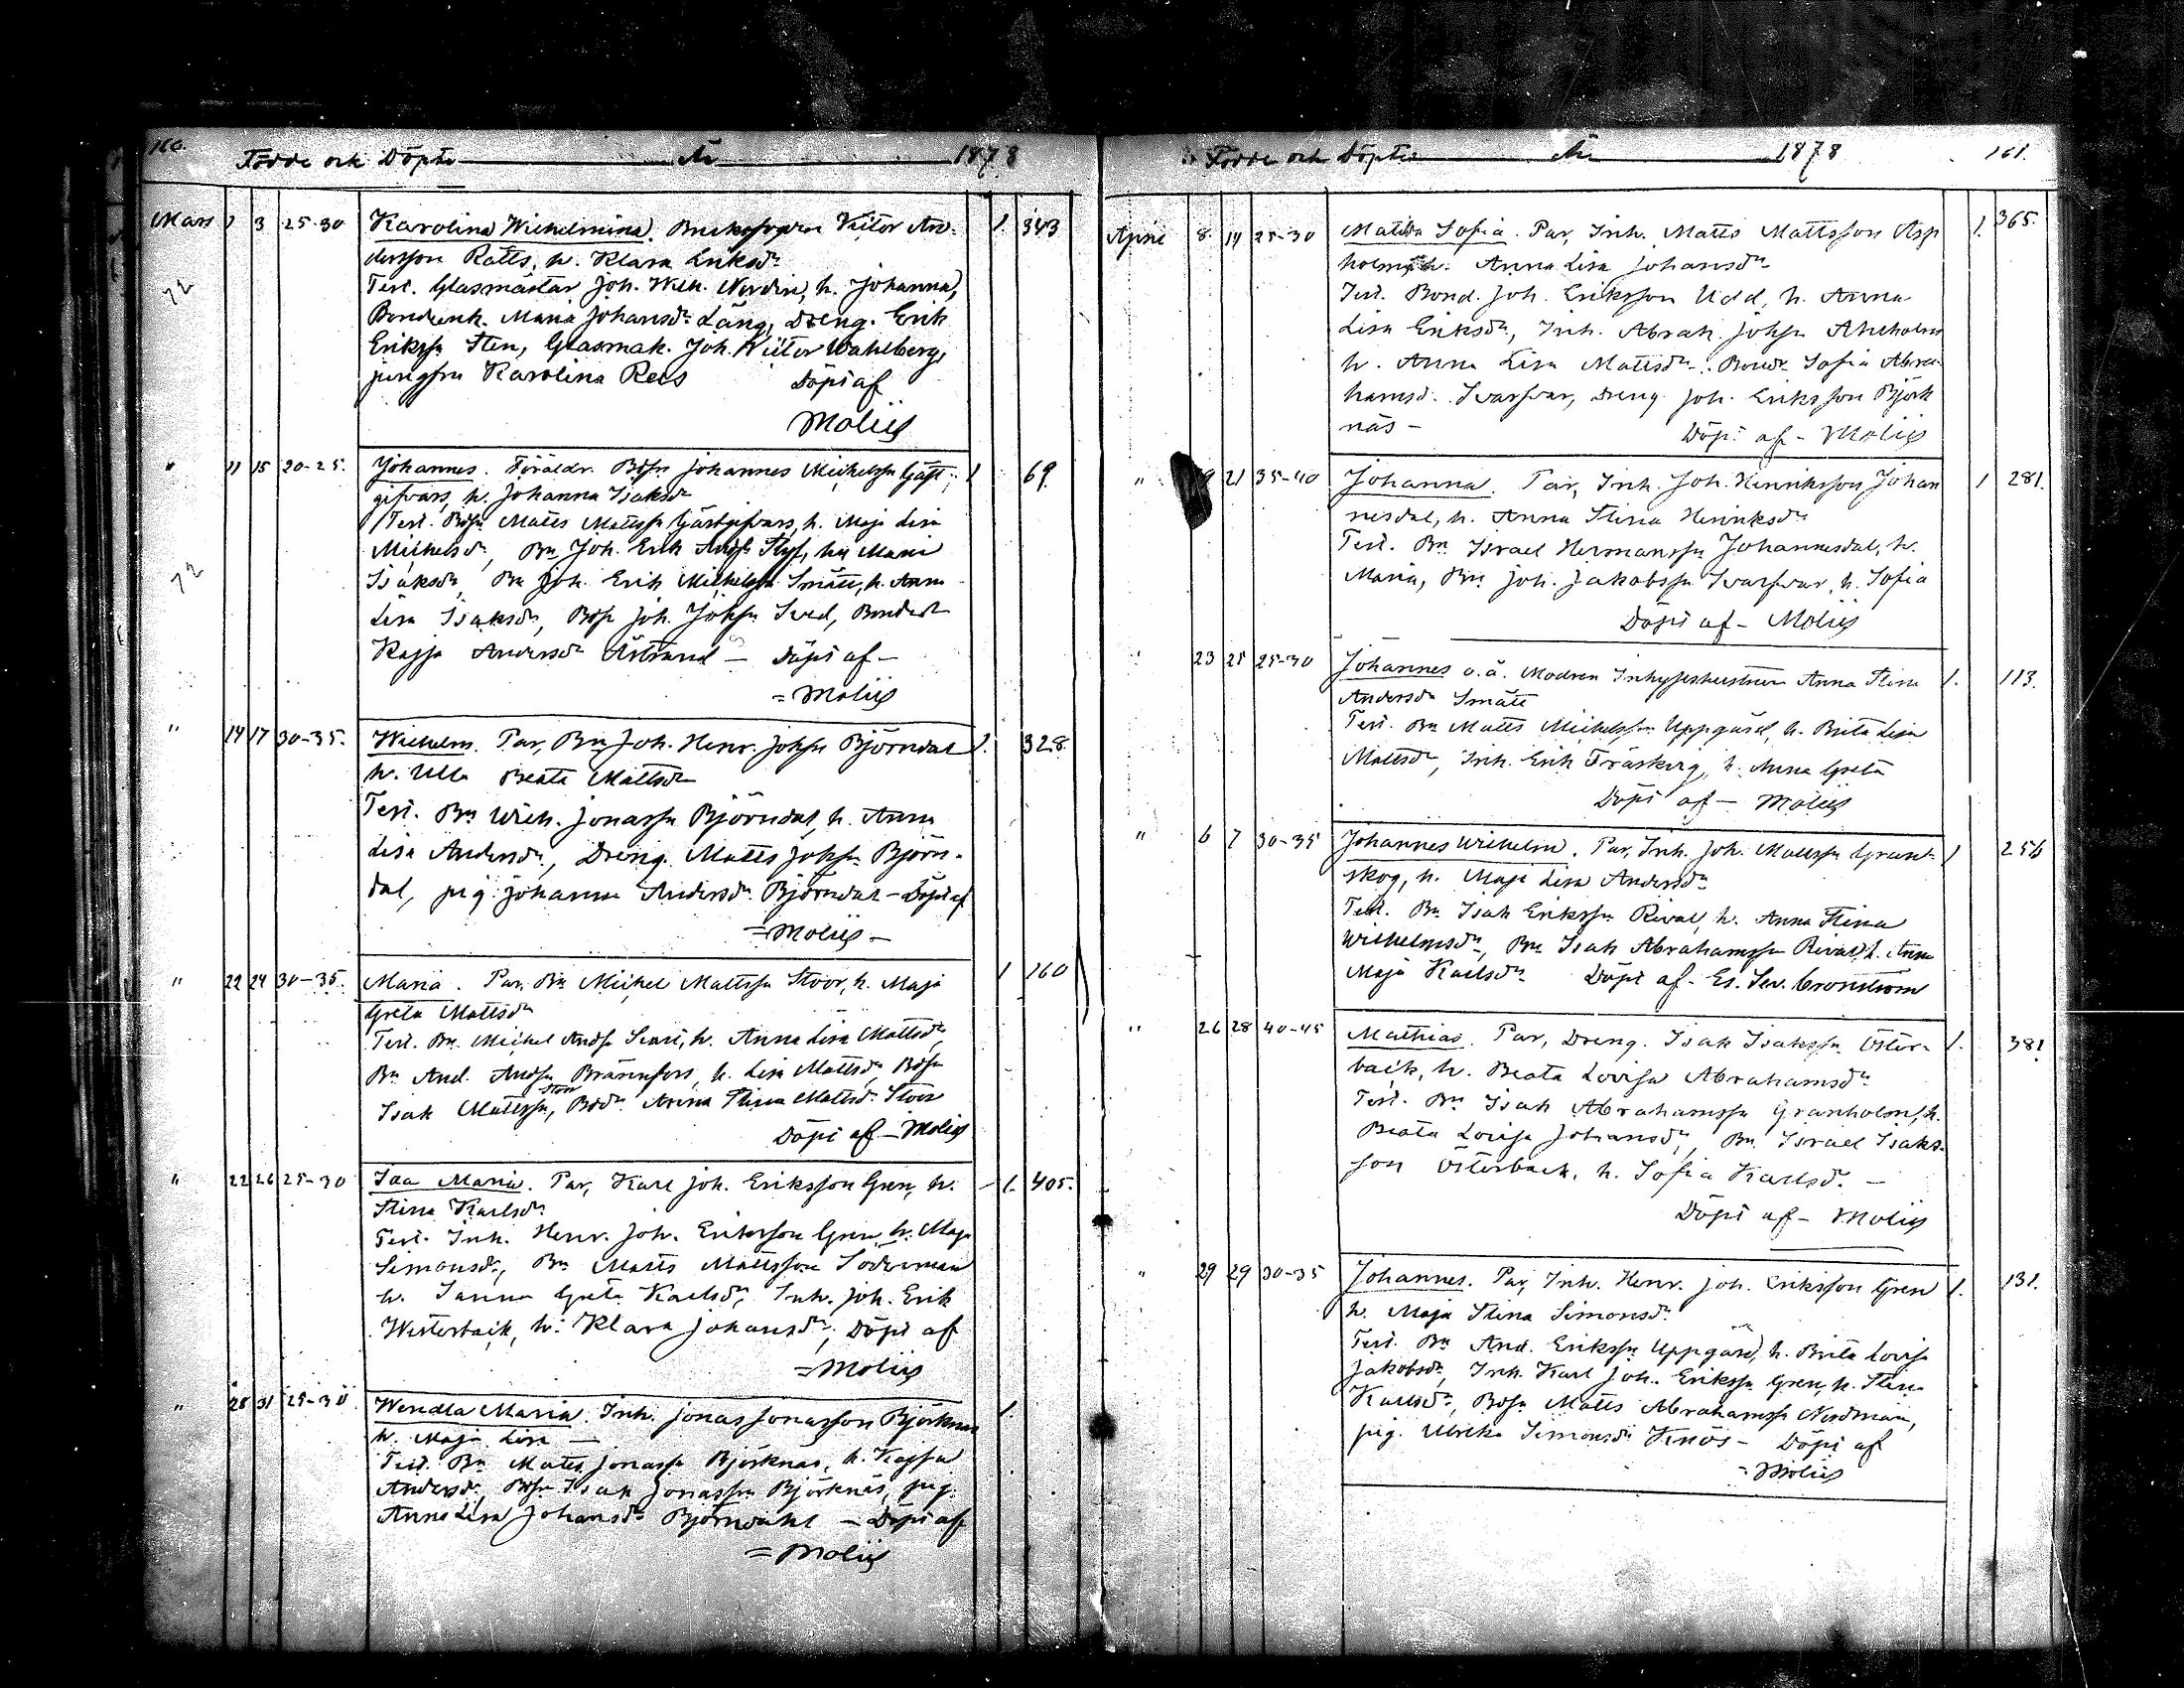 160.
Födde och Döpte År 1878
Mars 1 3 25-30 Karolina Wilhelmina. Victor An- 1. 343
dersson Ratts, h. Klara Eriksdr
Test. Glasmästar Joh. Wilh. Nordin, h. Johanna,
Bondeenk. Maria Johansdr Lång, Dreng. Erik
Erikssn Sten, Glasmak. Joh. Victor Wahlberg,
jungfru Karolina Reis Döpt af
Moliis
" 11 15 20-25. Johannes. Föräldr. Bdsn Johannes Michelssn Gäst- 1 69
gifvars, h. Johanna Isaksdr
Test. Bdsn Matts Mattssn Gästgifvars, h. Maja Lisa
Michelsdr, Bn Joh. Erik Andsn Slyf, hu Maria
Isaksdr, Bn Joh. Erik Michelssn Smått, h. Anna
Lisa Isaksdr, Bdsn Joh. Johsn Sved, Bondedr
Kajsa Andersdr Åstrand - Döpt af -
= Moliis
" 14 17 30-35. Wilhelm. Par, Bn Joh. Henr. Johsn Björndal 1. 328
h. Ulla Beata Mattsdr
Test. Bn Wilh. Jonassn Björndal, h. Anna
Lisa Andersdr, Dreng. Matts Johsn Björn-
dal, pig. Johanna Andersdr Björndal - Döpt af
= Moliis -
" 22 24 30-35. Maria. Par. Bn Michel Mattssn Stoor, h. Maja 1 160
Greta Mattsdr
Test. Bn Michel Andsn h. Anna Lisa Mattsdr,
Bn And. Andsn Brännfors, h. Lisa Mattsdr, Bdsn
Isak Mattssn Stoor, Bddr Anna Stina Mattsd. Stoor
Döpt af - Moliis
" 22 26 25-30 Ida Maria. Par, Karl Joh. Eriksson Gren, h. 1. 405.
Stina Karlsdr
Test. Inh. Henr. Joh. Eriksson Gren, h. Maja
Simonsdr, Bn Matts Mattsson Söderman
h. Sanna Greta Karlsdr, Inh. Joh. Erik
Westerback, h. Klara Johansdr, Döpt af
= Moliis
" 28 31 25-30. Wendla Maria. Inh. Jonas Jonasson Björknäs 1.
h. Maja Lisa -
Test. Bn Matts Jonassn Björknäs, h. Kajsa
Andersdr, Bdsn Isak Jonassn Björknäs, pig.
Anna Lisa Johansdr Björndahl - Döpt af
= Moliis
Födde och Döpte År 1878 161.
April 8. 14 25-30 Matilda Sofia. Par, Inh. Matts Mattsson Asp 1. 365.
holm, h. Anna Lisa Johansdr
Test. Bond. Joh. Eriksson Udd, h. Anna
Lisa Eriksdr, Inh. Abrah. Johsn Ahlholm
h. Anna Lisa Mattsdr. Bondr Sofia Abra-
hamsd. Svarfvar, Dreng Joh. Eriksson Björk
näs - Döpt af - Moliis
" 19 21 35-40 Johanna. Par, Inh. Joh. Henriksson Johan 1 281.
nesdal, h. Anna Stina Henriksdr
Test. Bn Israel Hermanssn Johannesdal, h.
Maria, Bn Joh. Jakobssn Svarfvar, h. Sofia
Döpt af - Moliis
" 23 25 25-30 Johannes o.ä. Modren Anna Stina 1. 113.
Andersdr Smått
Test. Bn Matts Michelssn Uppgård, h. Brita Lisa
Mattsdr, Inh. Erik Träskberg, h. Anna Greta
Döpt af - Moliis
" 6 7 30-35 Johannes Wilhelm. Par, Inh. Joh. Mattssn 1 256
skog, h. Maja Lisa Andersdr
Test. Bn Isak Erikssn Rivall, h. Anna Stina
Wilhelmsdr, Bn Isak Abrahamssn Rivall, h. Anna
Maja Karlsdr Döpt af - Cronström
" 26 28 40-45 Mathias. Par, Dreng. Isak Isakssn Öster- 1. 381
back, h. Beata Lovisa Abrahamsdr
Test. Bn Isak Abrahamssn Granholm, h.
Beata Lovisa Johansdr, Bn Israel Isaks-
son Österback, h. Sofia Karlsd. -
Döpt af - Moliis
" 29 29 30-35 Johannes. Par, Inh. Henr. Joh. Eriksson Gren 1. 131.
h. Maja Stina Simonsdr
Test. Bn And. Erikssn Uppgård, h. Brita Lovisa
Jakobsdr, Inh. Karl Joh. Erikssn Gren, h. Stina
Karlsdr, Bdsn Matts Abrahamssn Nordman,
pig. Ulrika Simonsdr Knös - Döpt af
= Moliis